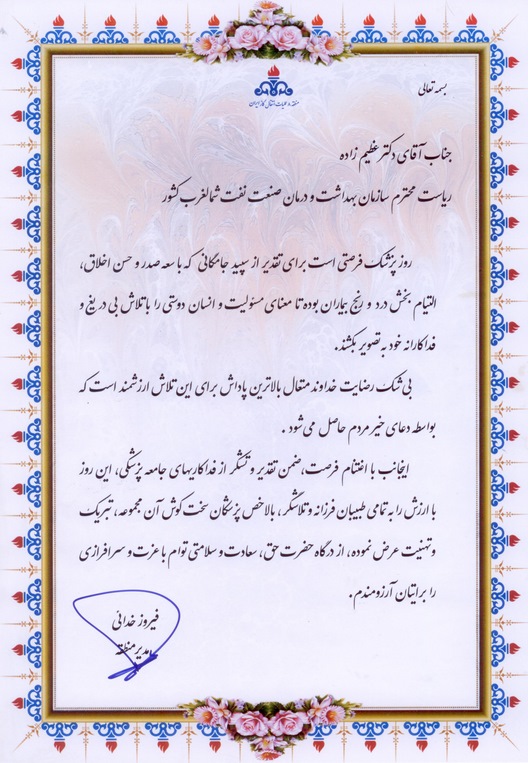 بسمه تعالی
منطقه ۸ عملیات انتقال گاز ایران
جناب آقای دکتر عظیم زاده
ریاست محترم سازمان بهداشت و درمان صنعت نفت شمالغرب کشور
روز پزشک فرصتی است برای تقدیر از سپید جامگانی که با سعه صدر و حسن اخلاق،
التیام بخش درد و رنج بیماران بوده تا معنای مسئولیت و انسان دوستی را با تلاش بی دریغ و
فداکارانه خود به تصویر بکشند.
بی شک رضایت خداوند متعال بالاترین پاداش برای این تلاش ارزشمند است که
بواسطه دعای خیر مردم حاصل می شود .
اینجانب با اغتنام فرصت، ضمن تقدیر و تشکر از فداکاریهای جامعه پزشکی، این روز
با ارزش را به تمامی طبیبان فرزانه و تلاشگر، بالاخص پزشکان سخت کوش آن مجموعه، تبریک
و تهنیت عرض نموده، از درگاه حضرت حق، سعادت و سلامتی توام با عزت و سرافرازی
را برایتان آرزومندم.
فیروز خدائی
مدیر منطقه